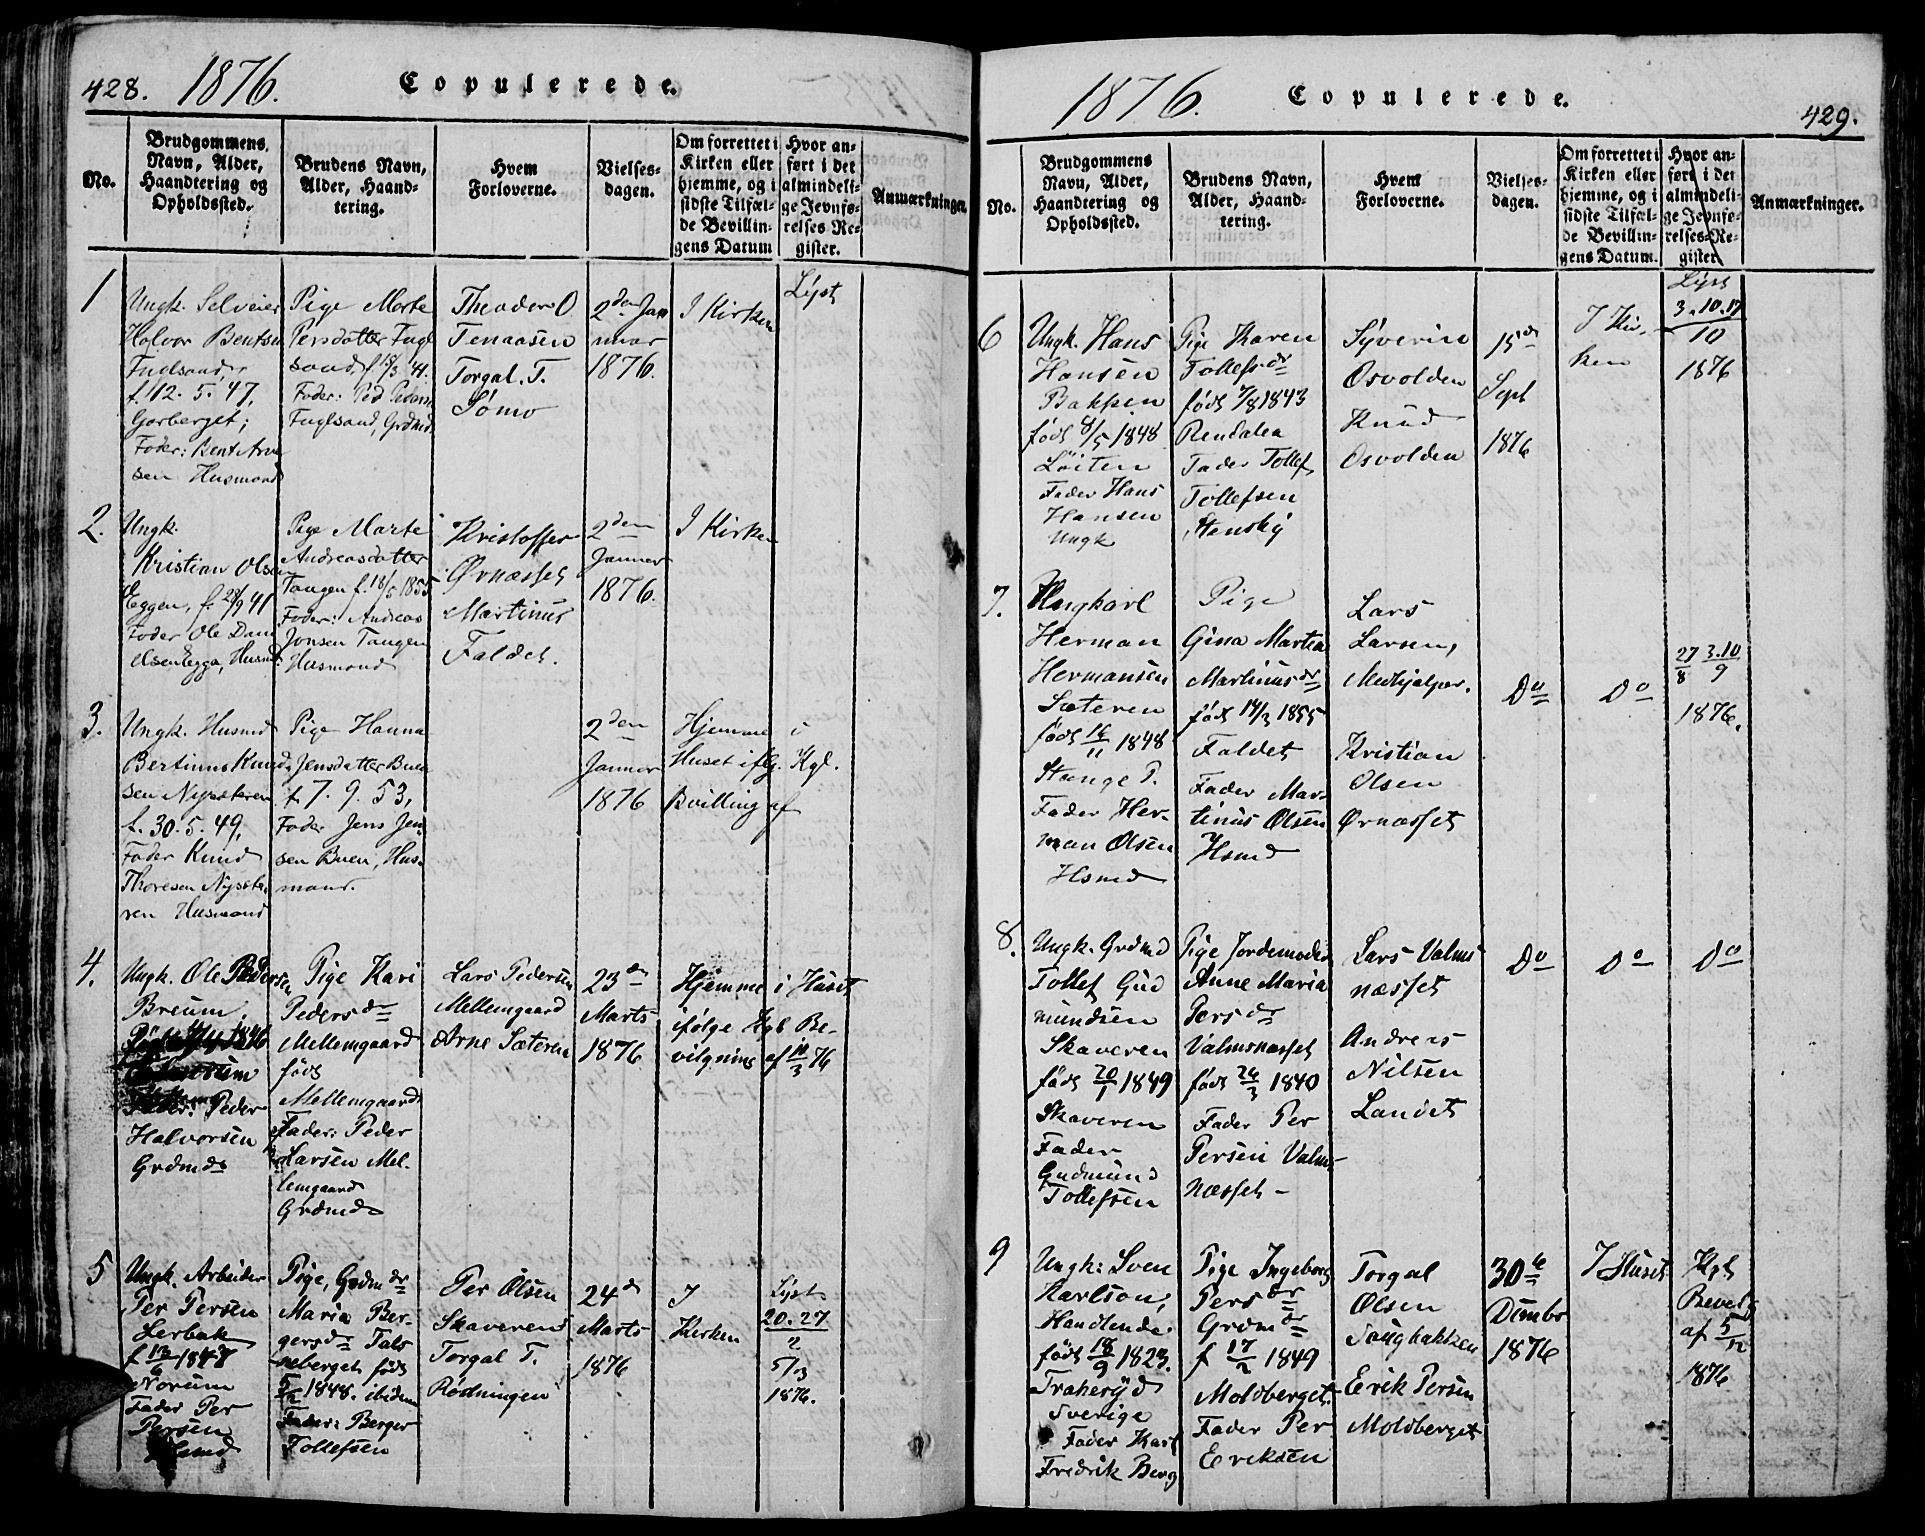 428. 1876. Copulerede.
No.
Brudgommens
Navn, Alder,
Haandtering og
Opholdssted.
Brudens Navn,
Alder, Haand-
tering.
Hvem
Forloverne.
Vielses-
dagen.
Om forrettet i
Kirken eller
hjemme, og i
sidste Tilfæl-
de Bevillin-
gens Datum
Hvor an-
ført i det
almindeli-
ge Jevnfø-
relses-Re-
gister.
Anmærkninger.
1
Ungk. Selveier
Halvor Bentsen
Fuglsand
f. 12. 5. 47,
Garberget;
Fader: Bent Arne
sen Husmand
Pige Marte
Persdatter Fugl
sand, f. 18/3 '41.
Fader: Ped Pedersen
Fuglsand, Grdmd.
Theodor O
Tenaasen
Torgal. T.
Sømo
2den Jan
nuar
1876.
I Kirken
Lyst
2.
Ungk.
Kristian Olsen
Eggen, f. 28/9 41
Fader Ole Dani
elsen Egga, Husmd
Pige Marte
Andreasdatter
Tangen f. 18/5 1855
Fader: Andreas
Jonsen Tangen
Husmand
Kristoffer
Ørnæsset
Martinus
Faldet.
2den
Januar
1876.
I Kirken
3.
Ungk. Husmd
Bertinus Knud
sen Nysæteren
f. 30. 5. 49,
Fader Knud
Thoresen Nysæte
ren Husmand
Pige Hanna
Jensdatter Buen
f. 7. 9. 53,
Fader Jens Jen
sen Buen, Hus-
mand.
2den
Januar
1876
Hjemme i
Huset iflg. Kgl.
Bvilling af
4.
Ungk. Ole Pedersen
Breum
Fader: Peder
Halvorsen
Grdmd
Pige Kari
Pedersdr
Mellemgaard
født
Mellemgaard
Fader: Peder
Larsen Mel-
lemgaard
Grdmd
Lars Pedersen
Mellemgaard
Arne Sæteren
23de
Marts
1876
Hjemme i Huset
ifølge Kgl Be-
vilgning af 10/3 76
5
Ungk. Arbeider
Per Persen
Lerbak
f 13/6 1847
Norum
Fader Per
Persen
Husmd
Pige, Grdmdr
Maria Ber-
gersdr Tals
neberget født
1848. ibidem
Fader: Berger
Tollefsen
Per Olsen
Skaveren
Torgal T.
Rødningen
24d
Marts
1876
I
Kirken
Lyst
20. 27
2
5/3
1876.
1876. Copulerede. 429.
No.
Brudgommens
Navn, Alder,
Haandtering og
Opholdssted.
Brudens Navn,
Alder, Haand-
tering.
Hvem
Forloverne.
Vielses-
dagen.
Om forrettet i
Kirken eller
hjemme, og i
sidste Tilfæl-
de Bevillin-
gens Datum.
Hvor an-
ført i det
almindeli-
ge Jevnfø-
relses-Re-
gister.
Anmærkninger.
6
Ungk. Hans
Hansen
Bakken
født 8/5 1848
Løiten
Fader Hans
Hansen
Ungk
Pige Karen
Tollefsdr
født 7/8 1843
Rendalen
Fader Tollef
Tollefsen
Stensby
Syverin
Osvolden
Knud
Osvolden
15de
Sept
1876
I Kir-
ken
Lyst
3. 10. 17
10
1876
7.
Ungkarl
Herman
Hermansen
Sæteren
født 16/11 1848
Stange P.
Fader Her-
man Olsen
Hsmd
Pige
Gina Martea
Martinusdr
født 14/3 1855
Faldet
Fader Mar-
tinus Olsen
Hsmd
Lars
Larsen,
Medhjelper.
Kristian
Olsen
Ørnæsset
Do
Do
27/8 3.10/9
1876.
8.
Ungk. Grdmd
Tollef Gud
mundsen
Skaveren
født 20/1 1849
Skaveren
Fader
Gudmund
Tollefsen
Pige Jordemoder
Anne Maria
Persdr
Valmsnæsset
født 26/3 1840
Fader Per
Persen Valms-
næsset -
Lars Valms
næsset
Andreas
Nilsen
Landet
Do
Do
Do
9
Ungk: Sven
Karlson,
Handlende.
født 18/9 1823.
Traheryd
Sverige
Fader Karl
Fredrik Berg
Pige Ingeborg
Persdr
Grdmdr
f 17/2 1849
Moldberget.
Fader Per
Eriksen
Torgal
Olsen
Saughakken
Erik Persen
Moldberget
30te
Dcmbr
1876
I Huset
Kgl
Bevilg
af 5/12
1876